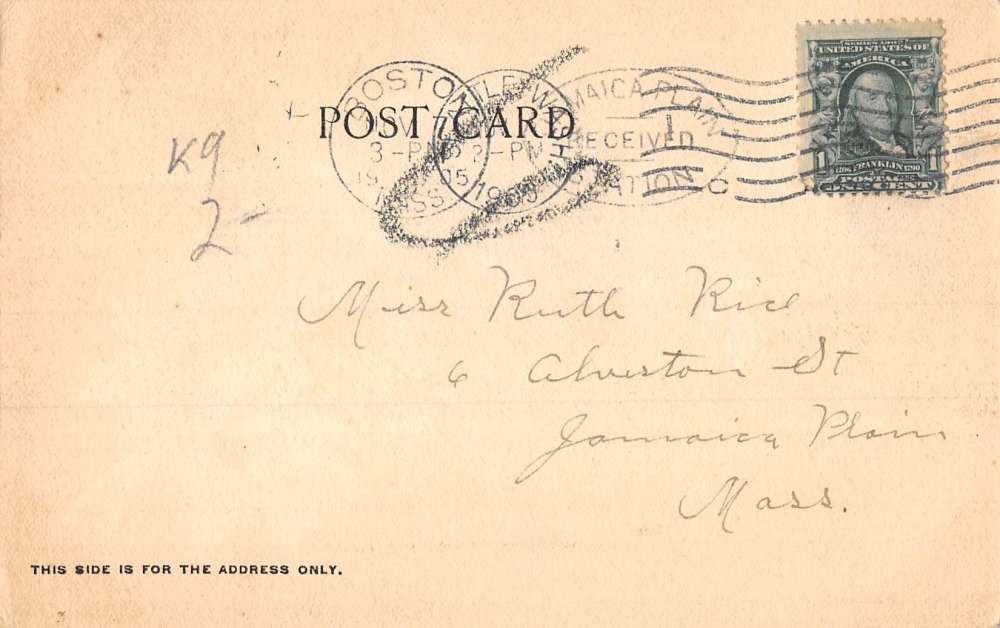 POST CARD
BOSTON
3-PM
MASS
2-PM
JAMAICA PLAIN
1
RECEIVED
STATION
SERIES 1902
UNITED STATES OF
AMERICA
1 FRANKLIN 1
1706 1790
POSTAGE
ONE CENT
K9
2-
Miss Ruth Rice
6 Alveston St
Jamaica Plain
Mass.
THIS SIDE IS FOR THE ADDRESS ONLY.